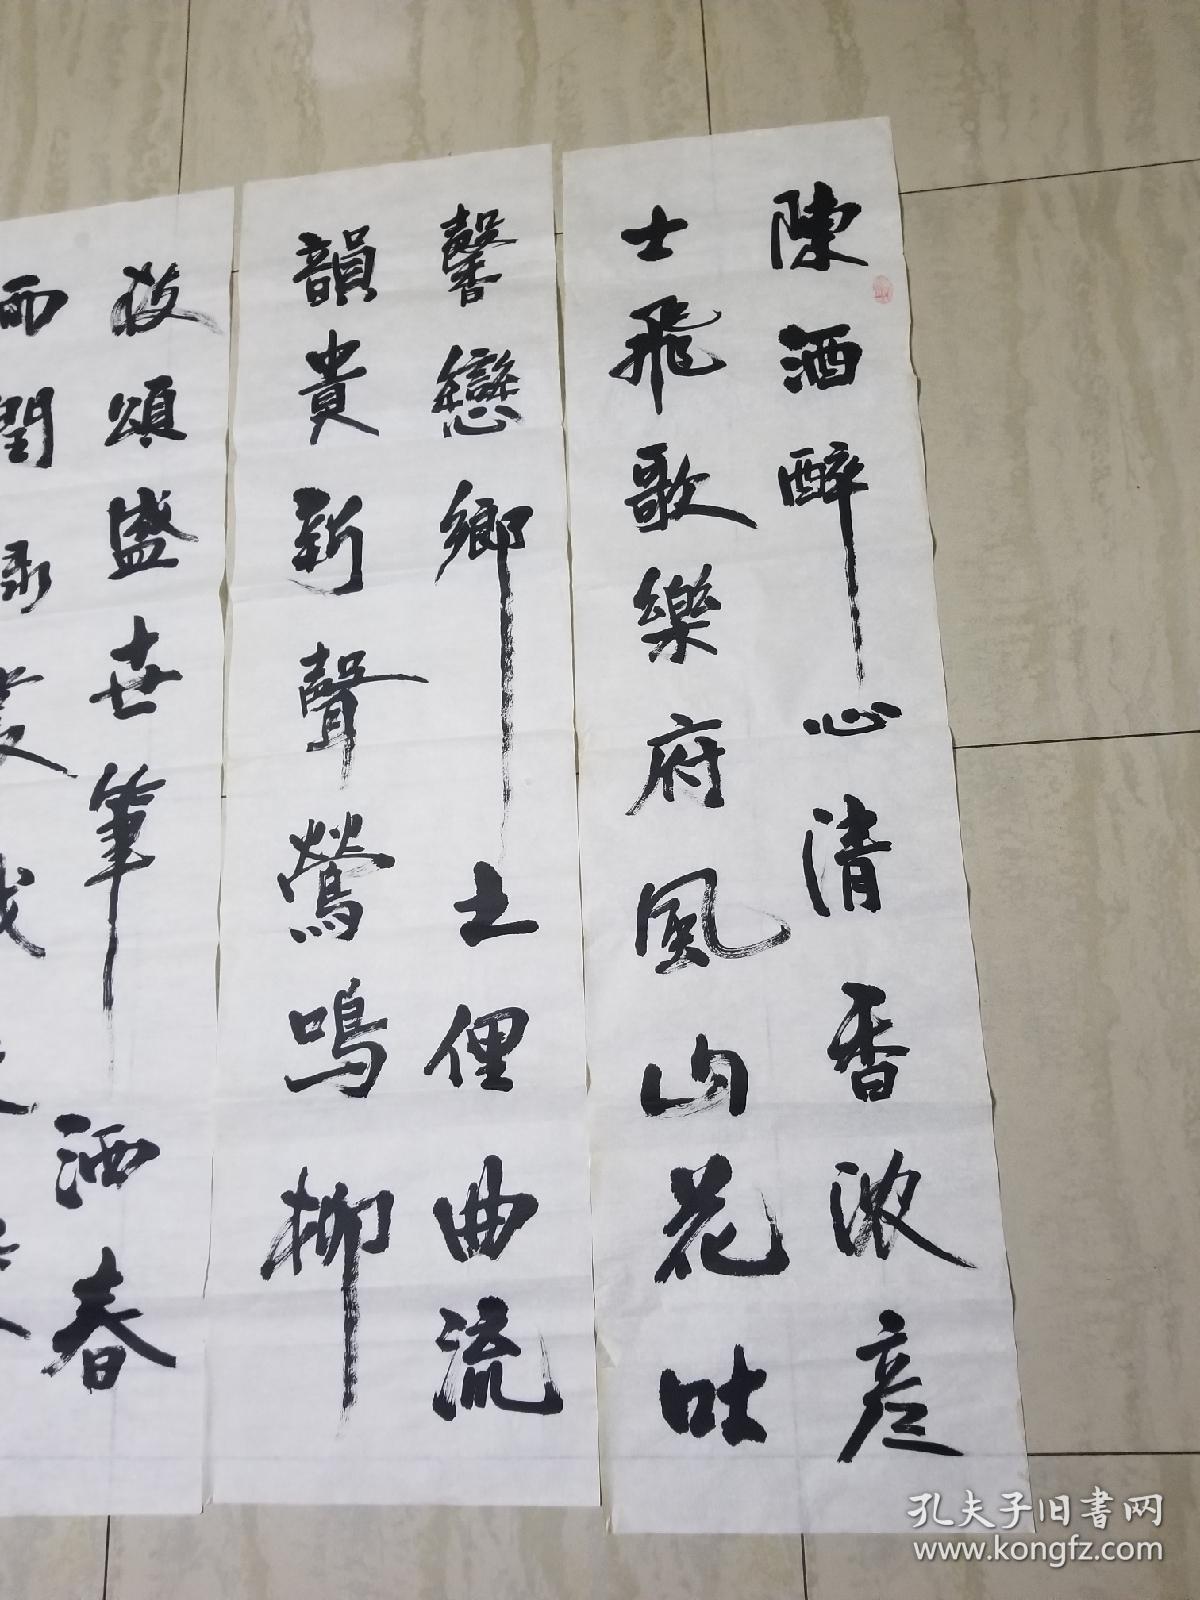 陳酒醉心清香浓彦
士飛歌樂府風山花吐
馨戀鄉土俚曲流
韻貴新聲鶯鳴柳
放頌盛世筆洒春
雨閏
孔夫子旧書网
www.kongfz.com